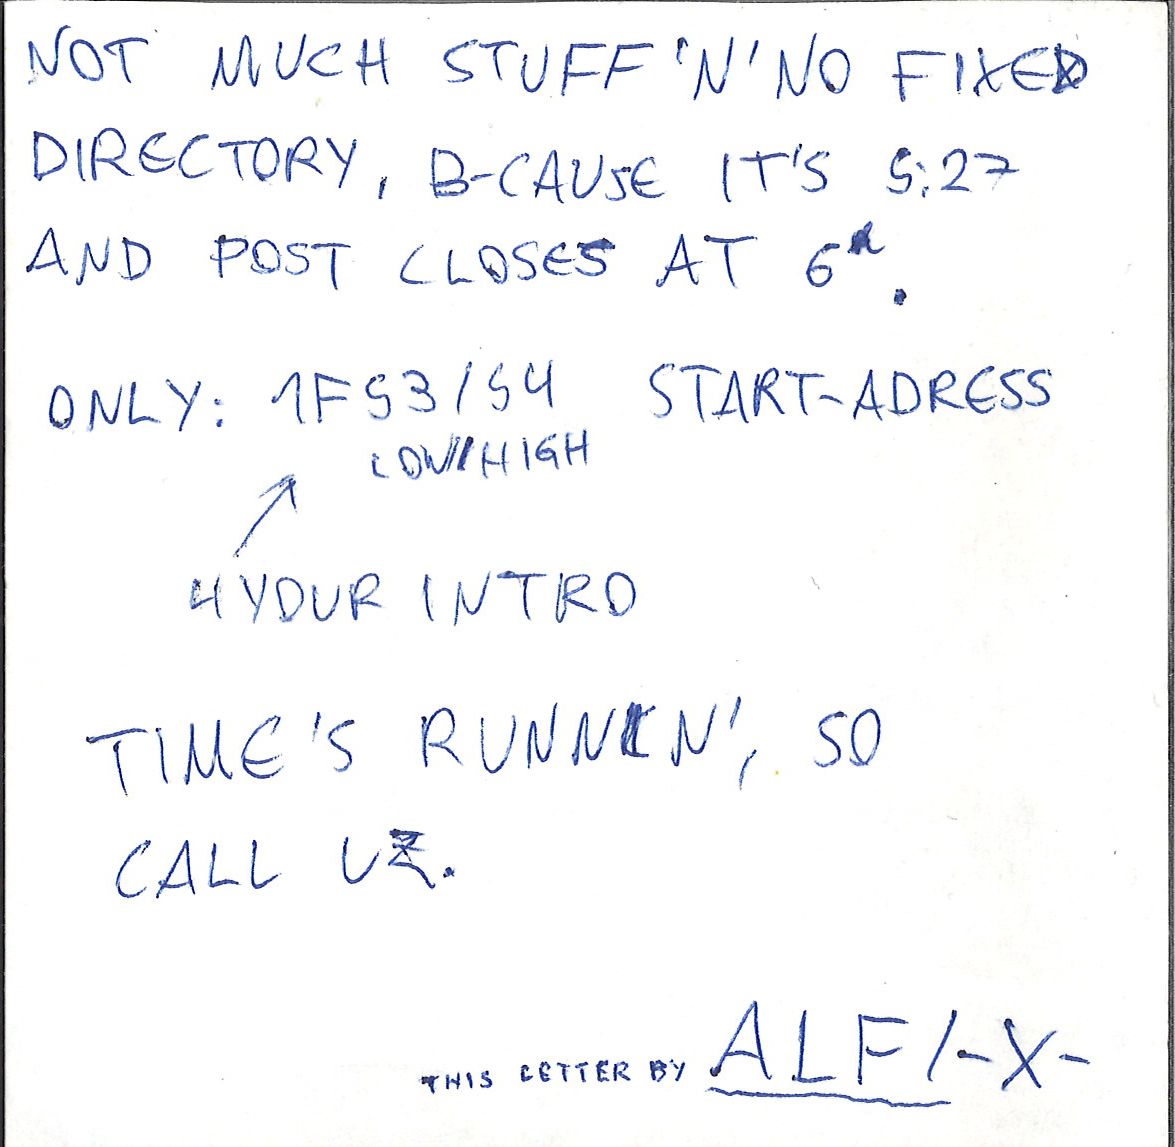 NOT MUCH STUFF 'N' NO FIXED
DIRECTORY, B-CAUSE IT'S 5:27
AND POST CLOSES AT 6h.
ONLY: 1F53/54 START-ADRESS
LOW/HIGH
4 YOUR INTRO
TIME'S RUNNIN', SO
CALL UZ.
THIS LETTER BY ALF/-X-